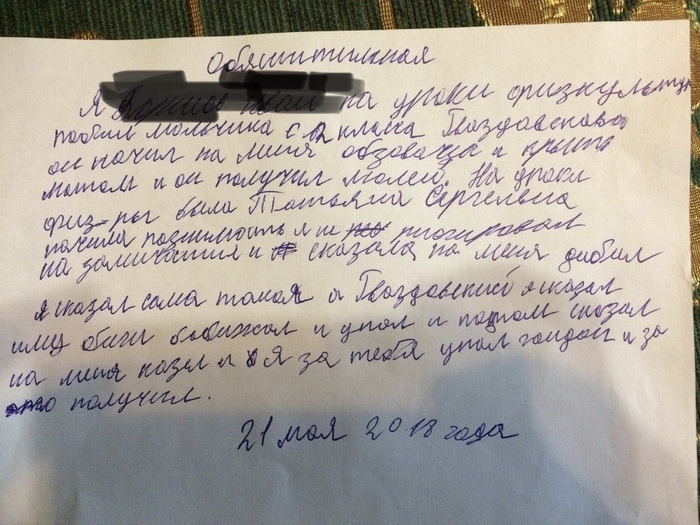 Обяснитильная
Я на уроки физкультури
побил мольчика с 2 класса Гваздавскава
он начил на миня обзоваца и крыть
матом и он получил люлей. На уроки
физ-ры была Татьяна Сергевна
начила разнимать я ни riогировал
на замичания и сказала на миня дибил
я сказал сама такая а Гваздавский я сказал
иму биги бабижал и упал и патом сказал
на миня казел и я за тебя упал гандон и за
это получил.
21 мая 2018 года